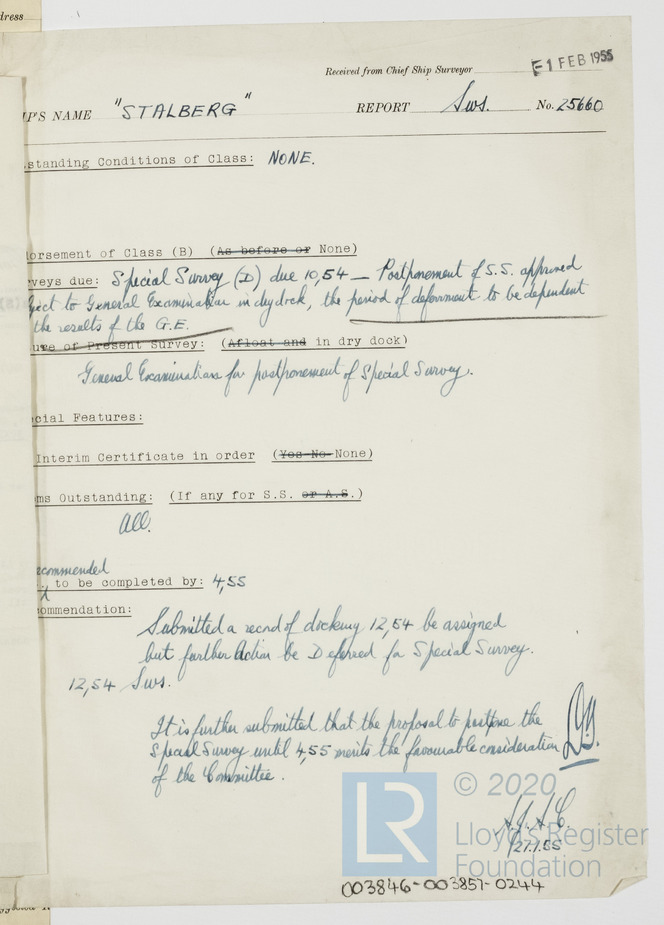 dress
Received from Chief Ship Surveyor
1 FEB 1955
P'S NAME "STALBERG" REPORT Sws. No. 25660
standing Conditions of Class: NONE.
orsement of Class (B) (As before or None)
veys due: Special Survey (D) due 10,54 — Postponement of S.S. approved
ject to General Examination in dry dock, the period of deferment to be dependent
the results of the G.E.
ure of Present Survey: (Afloat and in dry dock)
General Examination for postponement of Special Survey.
cial Features:
Interim Certificate in order (Yes No None)
ms Outstanding: (If any for S.S. or A.S.)
All.
ecommended
to be completed by: 4,55
ommendation:
Submitted a record of docking 12,54 be assigned
but further action be Deferred for Special Survey.
12,54 Sws.
It is further submitted that the proposal to postpone the
Special Survey until 4,55 merits the favourable consideration
of the Committee.
27.1.55
LR
© 2020
Lloyd's Register
Foundation
003846-003857-0244